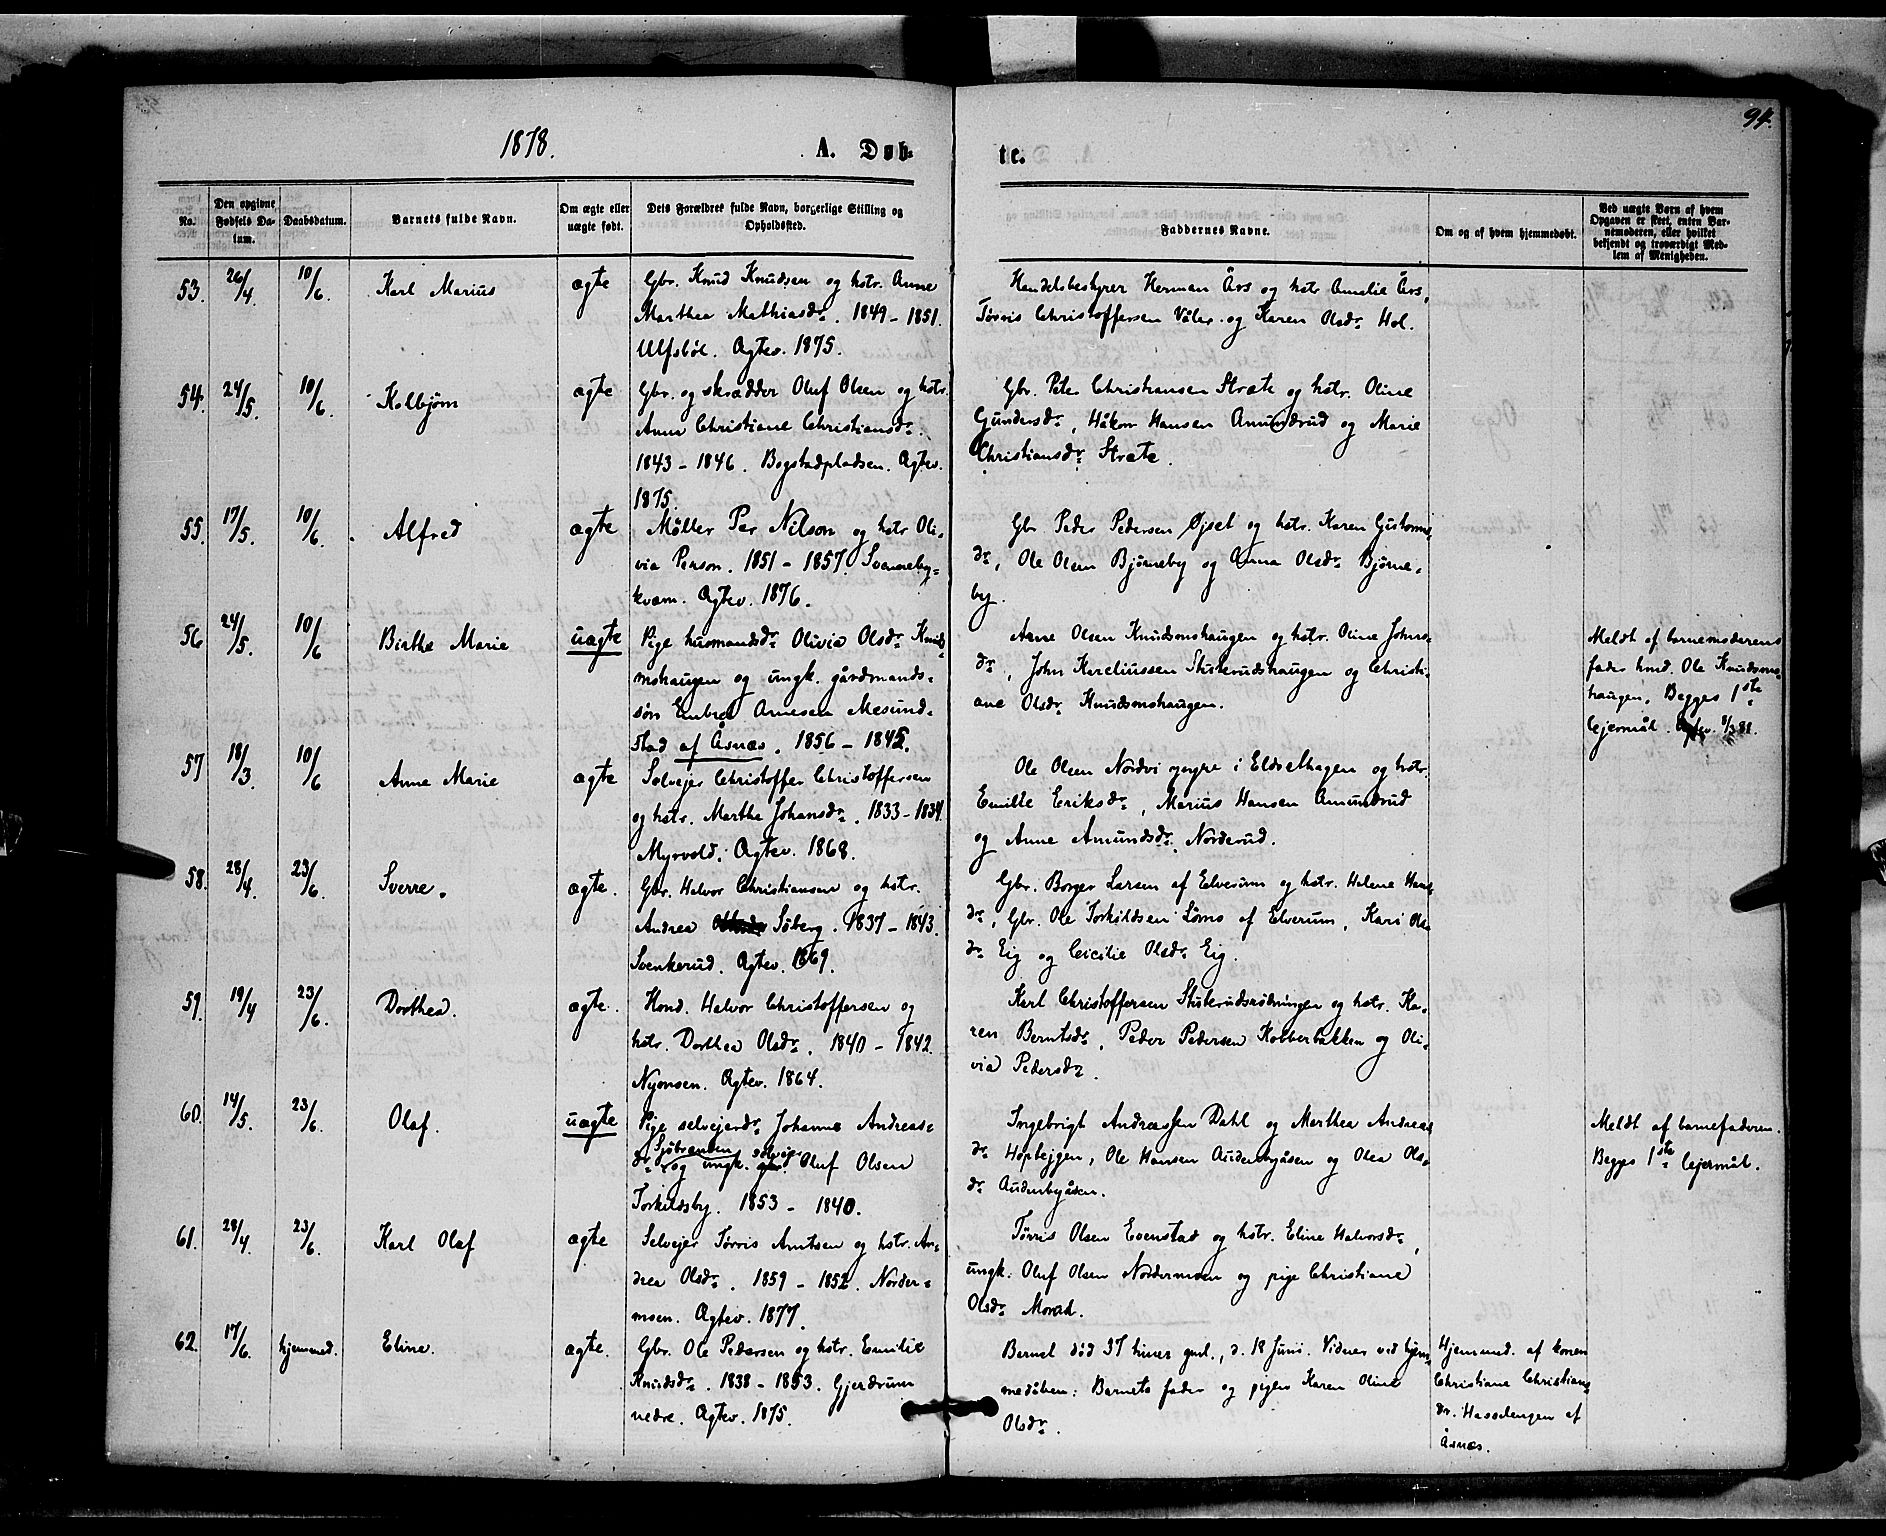 94.
1878.
A. Døb-
te.
No.
Den opgivne Fødsels Datum.
Daabsdatum.
Barnets fulde Navn.
Om ægte eller uægte født.
Dets Forældres fulde Navn, borgerlige Stilling og Opholdssted.
Faddernes Navne.
Om og af hvem hjemmedøbt.
Ved uægte Børn af hvem Opgaven er skeet, enten Barnemoderen, eller hvilket bekjendt og troværdigt Medlem af Menigheden.
53. 26/4 10/6 Karl Marius ægte
Gbr. Knud Knudsen og hstr. Anne
Marthea Mathiasdr. 1849 - 1851.
Ulfsbøl. Ægtev. 1875.
Handelsbestyrer Herman Års og hstr Amalie Års,
Tørris Christoffersen Våler og Karen Olsdr Hol.
54. 24/5. 10/6 Kolbjørn ægte
Gbr. og skrædder Oluf Olsen og hstr.
Anne Christiane Christiansdr.
1843 - 1846. Bogstadpladsen. Ægtev.
1875.
Gbr. Peter Christiansen Stræte og hstr. Oline
Gundersdr, Håkon Hansen Amundrud og Marie
Christiansdr Stræte.
55. 17/5. 10/6. Alfred ægte
Møller Per Nilson og hstr Oli-
via Person. 1851 - 1857. Svenneby-
kvern. Ægtev. 1876.
Gbr Peder Pedersen Øjset og hstr. Karen Gustorms
dr, Ole Olsen Bjørneby og Anna Olsdr Bjørne-
by.
56 24/5. 10/6 Birthe Marie uægte
Pige husmandsdr Olivia Olsdr Knuds-
monshaugen og ungk. gårdmands-
søn Embret Arnesen Mesund-
stad af Åsnæs. 1856 - 1845.
Arne Olsen Knudsmonshaugen og hstr. Oline Johns-
dr, John Kareliussen Stuterudshaugen og Christi-
ane Olsdr Knudsmonshaugen.
Meldt af barnemoderens
fader hmd. Ole Knudsmons-
haugen. Begges 1ste
lejermål.
57 18/3. 10/6 Anne Marie ægte
Selvejer Christoffer Christoffersen
og hstr. Marthe Johansdr. 1833 - 1834.
Myrvold. Ægtev. 1868.
Ole Olsen Nordvi yngre i Eldsethagen og hstr.
Emilie Eriksdr, Marius Hansen Amundrud
og Anne Amundsdr Norderud.
58. 28/4. 23/6. Sverre. ægte.
Gbr. Halvor Christiansen og hstr.
Andrea Søberg. 1837 - 1843.
Svenkerud. Ægtev. 1869.
Gbr. Borger Larsen af Elverum og hstr. Helene Hans
dr, Gbr. Ole Torkildsen Løms af Elverum, Kari Ols
dr Eig og Cicilie Olsdr Eig.
59. 19/4 23/6. Dorthea. ægte.
Hmd. Halvor Christoffersen og
hstr. Dorthea Olsdr. 1840 - 1842.
Nymoen. Ægtev. 1864.
Karl Christoffersen Stuterudsrøbningen og hstr. Ka-
ren Berntsdr, Peder Pedersen Kobberbakken og Oli-
via Pedersdr.
60. 14/5. 23/6. Olaf. uægte
Pige selvejerdr. Johanne Andreas-
dr Sjøbrenden og ungk. selvejer Oluf Olsen
Torkildsby. 1853 - 1840.
Ingebrigt Andreassen Dahl og Marthea Andreas
dr Hoptejgen, Ole Hansen Audenbyåsen og Olea Ols-
dr Audenbyåsen.
Meldt af barnefaderen.
Begges 1ste lejermål.
61. 28/4. 23/6. Karl Olaf ægte
Selvejer Tørris Arntsen og hstr. An-
drea Olsdr. 1859 - 1852. Norder-
moen. Ægtev. 1877.
Tørris Olsen Evenstad og hstr. Eline Halvorsdr,
ungk. Oluf Olsen Nordermoen og pige Christiane
Olsdr Morad.
62. 17/6. hjemmed. Eline. ægte.
Gbr. Ole Pedersen og hstr. Emilie
Knudsdr. 1838 - 1853. Gjerdrum
nedre. Ægtev. 1875.
Barnet død 37 timer gml., d. 18 Juni. Vidner ved hjem-
medåben: Barnets fader og pigen Karen Oline
Olsdr.
Hjemmed. af konen
Christiane Christians
dr. Hasselengen af
Åsnæs.